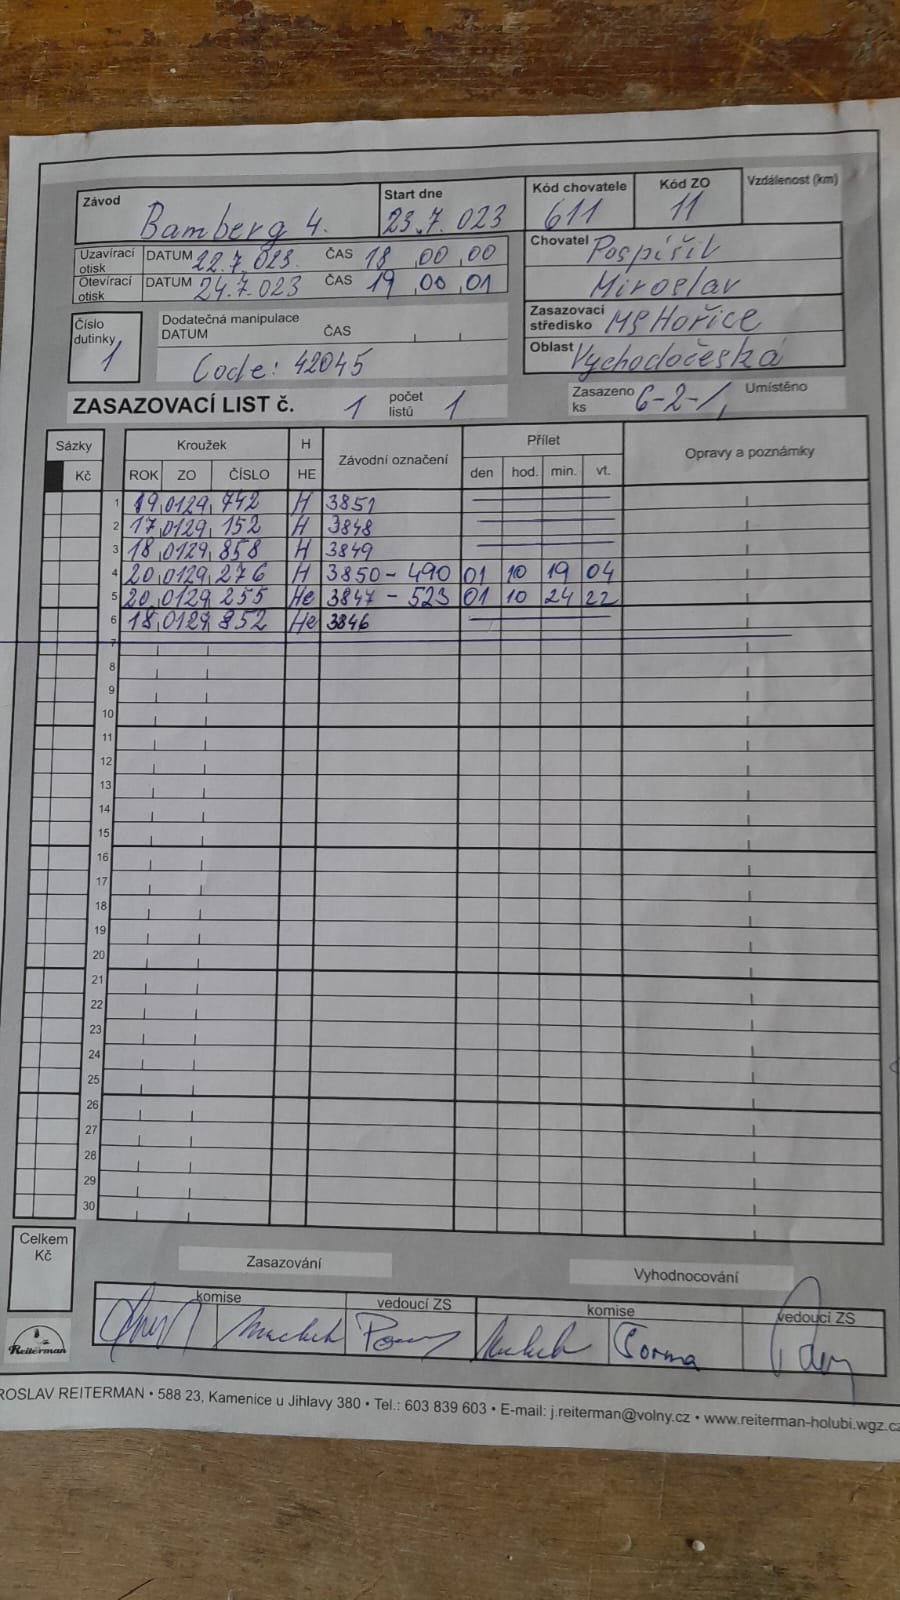 Závod Start dne Kód chovatele Kód ZO Vzdálenost (km)
Bamberg 4. 23.7.023 611 11
Uzavírací otisk DATUM 22.7.023. ČAS 18 00 00
Otevírací otisk DATUM 24.7.023 ČAS 19 00 01
Chovatel Pospíšil
Miroslav
Zasazovací středisko MS Hořice
Oblast Vychodočeská
Číslo dutinky 1
Dodatečná manipulace
DATUM ČAS
Code: 42045
ZASAZOVACÍ LIST č. 1 počet listů 1
Zasazeno ks 6-2-1, Umístěno
Sázky Kroužek H Závodní označení Přílet Opravy a poznámky
Kč ROK ZO ČÍSLO HE den hod. min. vt.
1 19 0129 742 H 3851
2 17 0129 152 H 3848
3 18 0129 858 H 3849
4 20 0129 276 H 3850 - 490 01 10 19 04
5 20 0129 255 He 3847 - 523 01 10 24 22
6 18 0129 852 He 3846
7
8
9
10
11
12
13
14
15
16
17
18
19
20
21
22
23
24
25
26
27
28
29
30
Celkem Kč
Zasazování Vyhodnocování
komise vedoucí ZS komise vedoucí ZS
Forma
Reiterman
ROSLAV REITERMAN • 588 23, Kamenice u Jihlavy 380 • Tel.: 603 839 603 • E-mail: j.reiterman@volny.cz • www.reiterman-holubi.wgz.cz